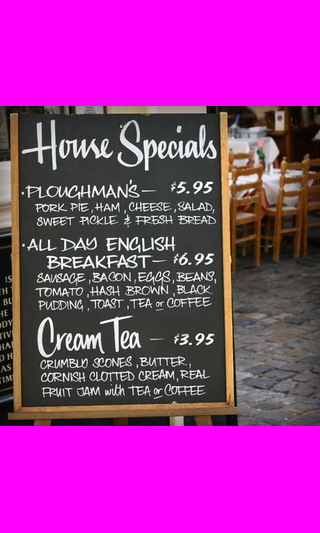 House Specials
·PLOUGHMAN'S— $5.95
PORK PIE, HAM, CHEESE, SALAD,
SWEET PICKLE & FRESH BREAD
·ALL DAY ENGLISH
BREAKFAST— $6.95
SAUSAGE, BACON, EGGS, BEANS,
TOMATO, HASH BROWN, BLACK
PUDDING, TOAST, TEA or COFFEE
Cream Tea — $3.95
CRUMBLD SCONES, BUTTER,
CORNISH CLOTTED CREAM, REAL
FRUIT JAM with TEA or COFFEE